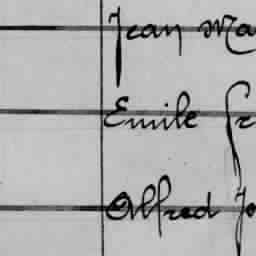 Jean Ma
Emile Fr
Alfred Jo